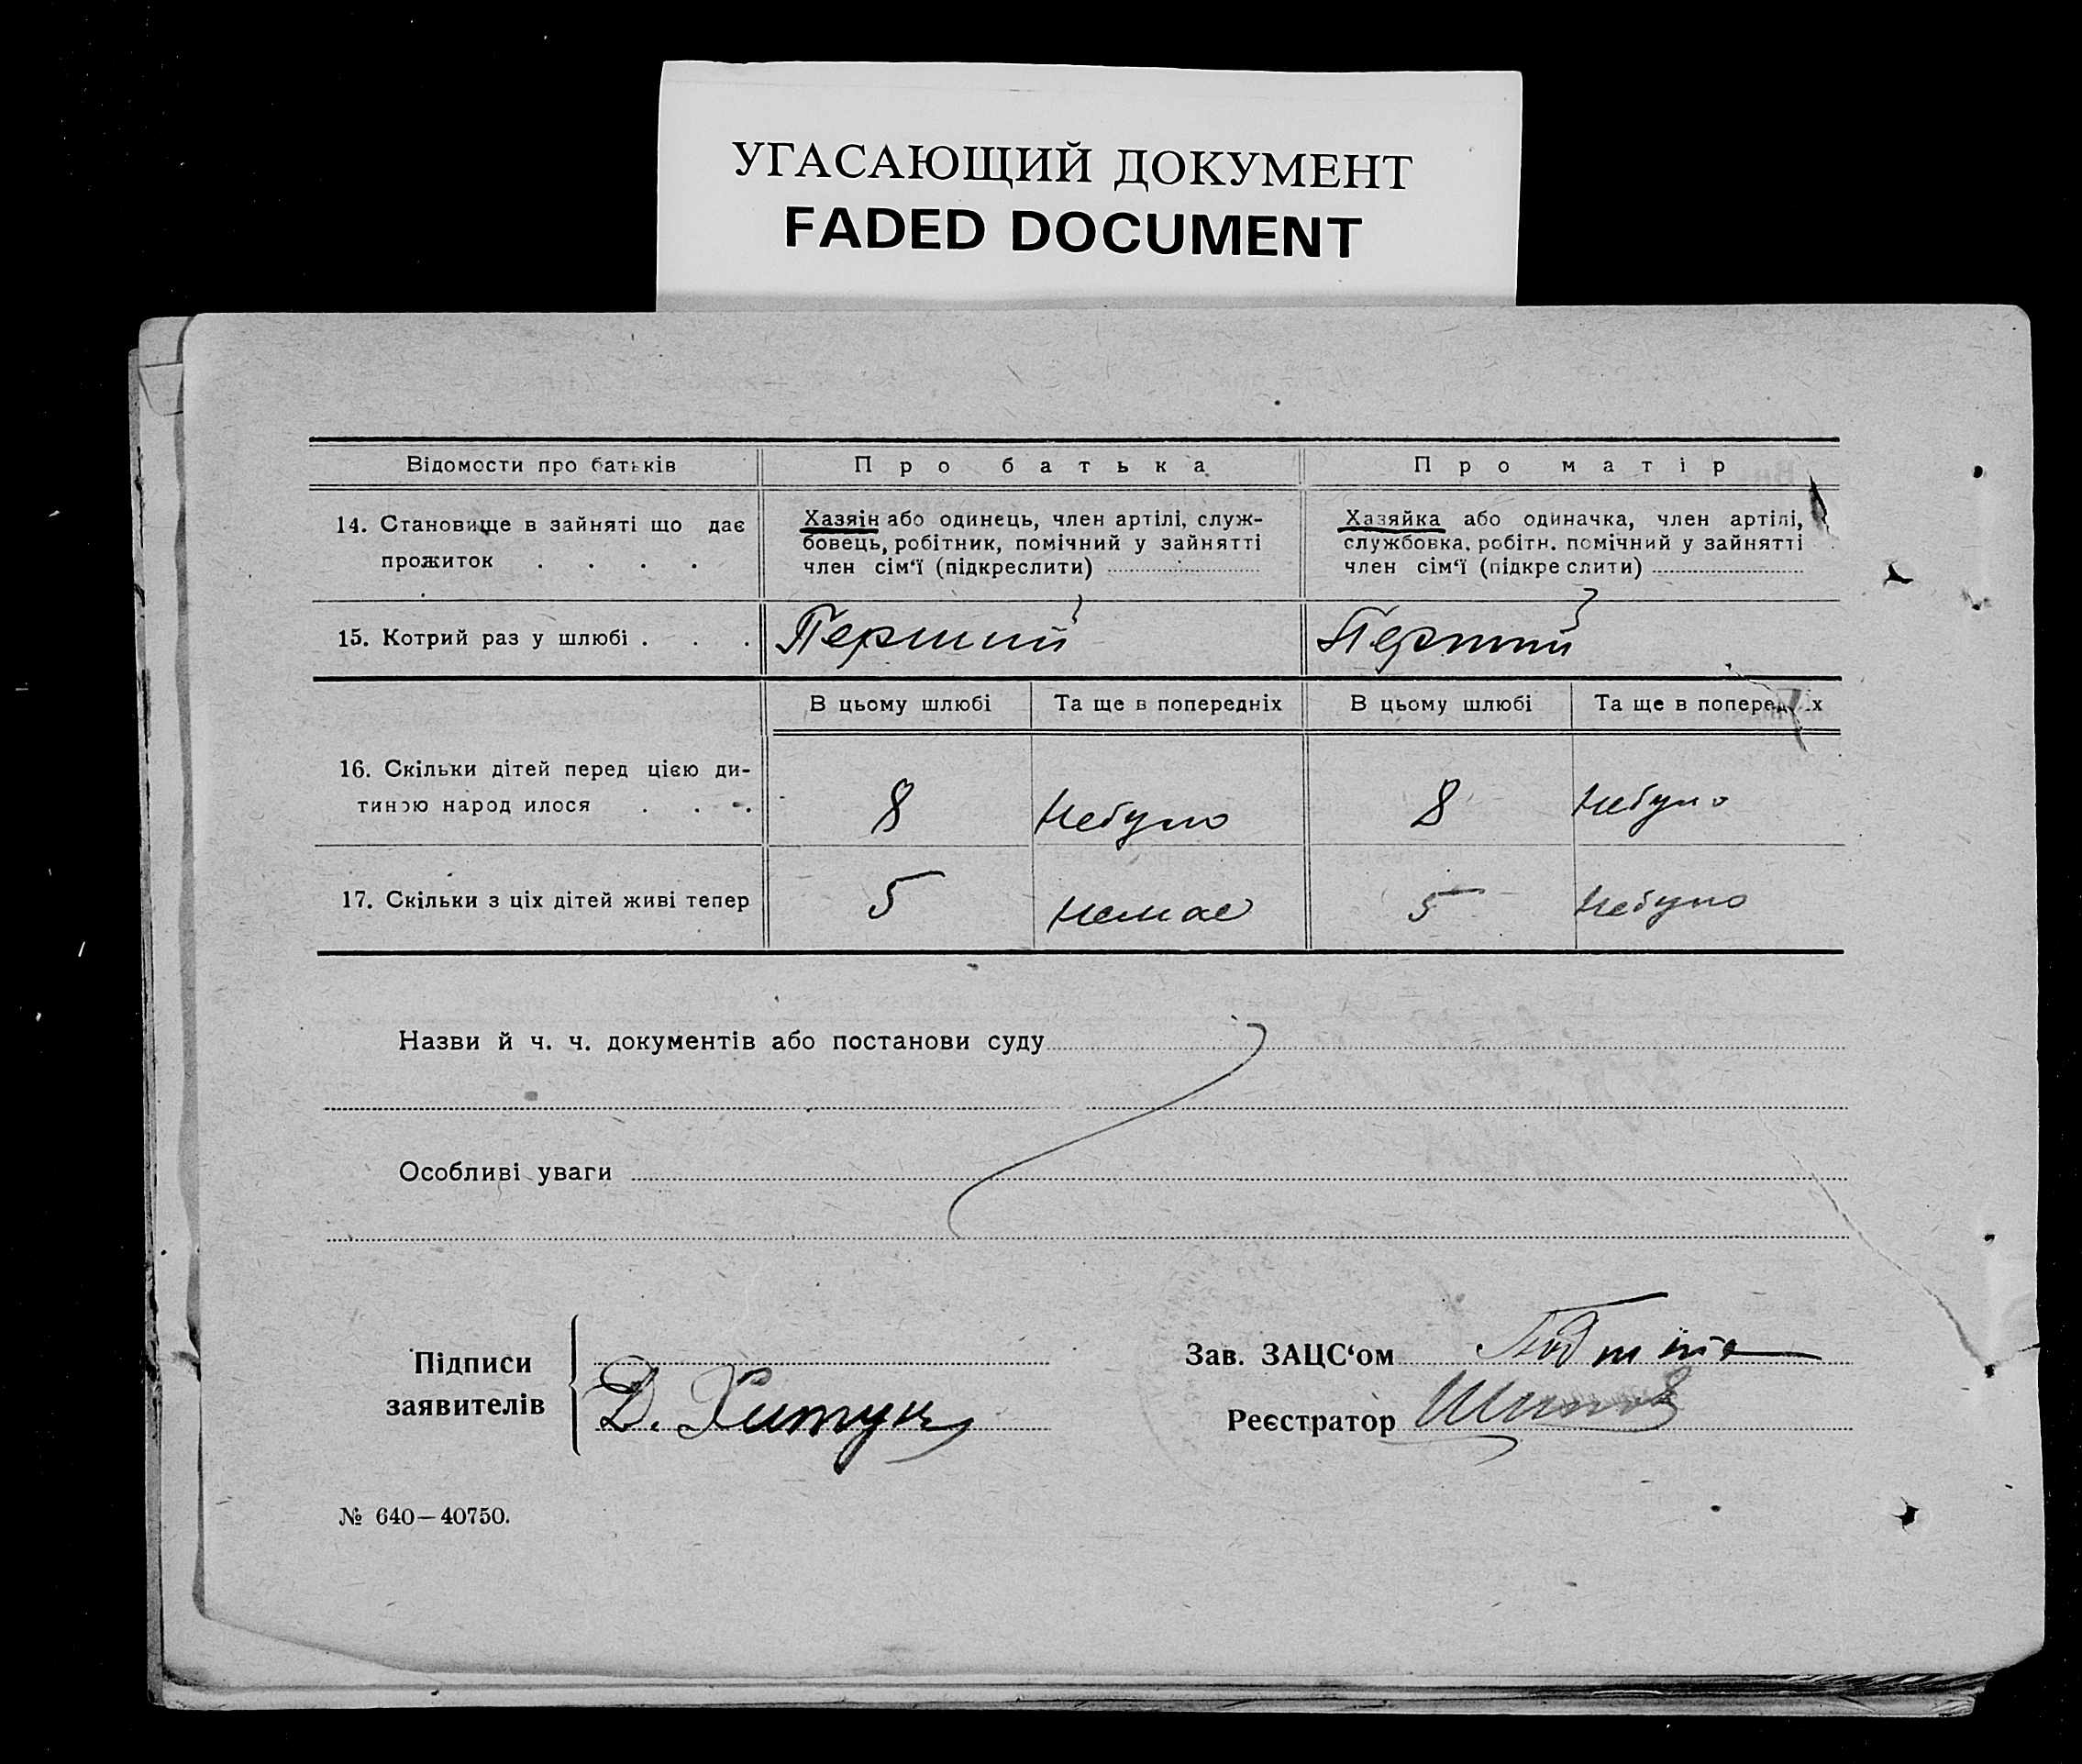 УГАСАЮЩИЙ ДОКУМЕНТ
FADED DOCUMENT
Відомости про батьків
Про батька
Про матір
14. Становище в зайняті що дає
прожиток . . . .
Хазяїн або одинець, член артілі, служ-
бовець, робітник, помічний у зайнятті
член сім‘ї (підкреслити)
Хазяйка або одиначка, член артілі,
службовка, робітн. помічний у зайнятті
член сім‘ї (підкреслити)
15. Котрий раз у шлюбі . . .
Перший
Перший
В цьому шлюбі
Та ще в попередніх
В цьому шлюбі
Та ще в попередніх
16. Скільки дітей перед цією ди-
тиною народилося . . .
8
небуло
8
небуло
17. Скільки з ціх дітей живі тепер
5
немає
5
небуло
Назви й ч. ч. документів або постанови суду
Особливі уваги
Підписи
заявителів
Д.
Зав. ЗАЦС‘ом
Реєстратор
№ 640—40750.